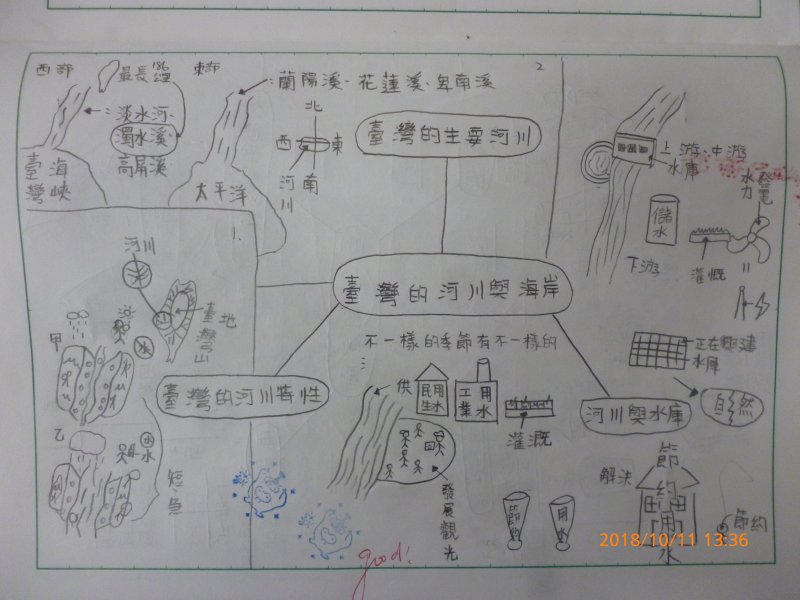 西部
最長186公里
淡水河、
濁水溪、
高屏溪
臺灣海峽
東部
蘭陽溪、花蓮溪、卑南溪
太平洋
北
西 東
南
河川
2
臺灣的主要河川
1、
河川
臺灣山地
甲
乙
水
短、急
臺灣的河川特性
臺灣的河川與海岸
不一樣的季節有不一樣的
:
供
民用生水
工業用水
灌溉
發展觀光
上游、中游
水庫
儲水
水力發電
灌溉
下游
=
正在興建水庫
自然
河川與水庫
解決
節約用水
節約
節約
用水
good!
2018/10/11 13:36